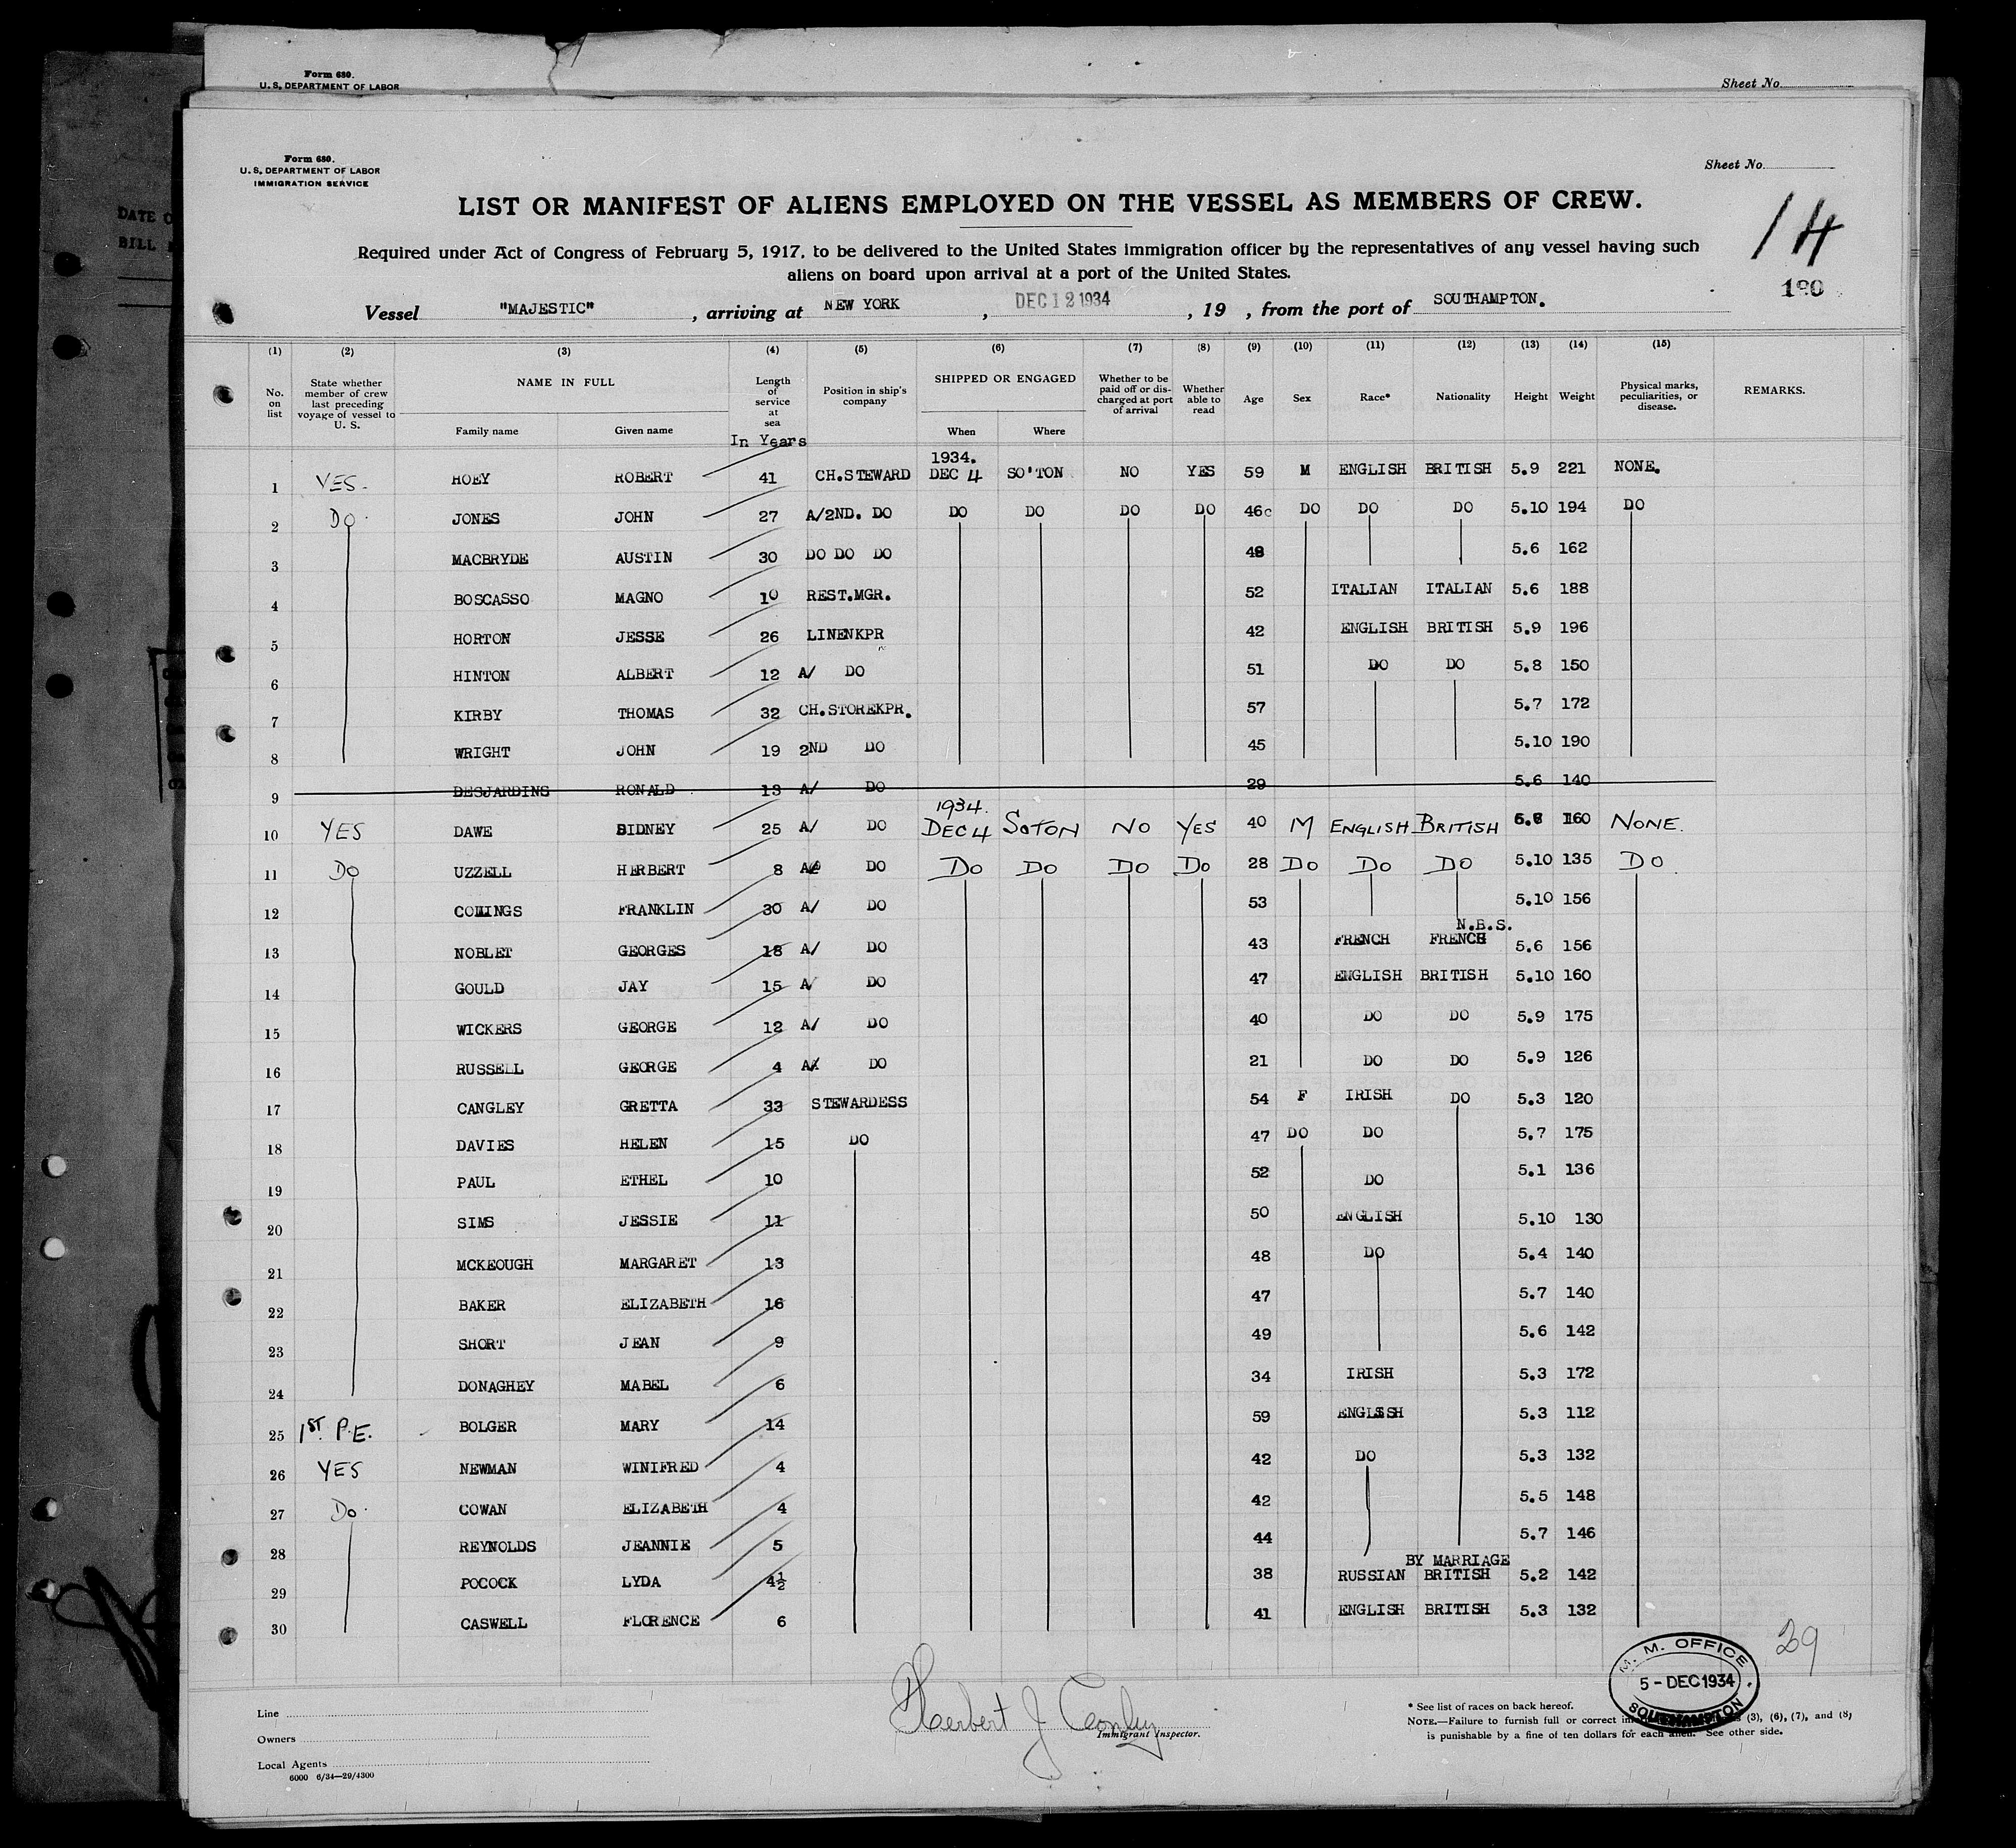 Form 680.
U. S. DEPARTMENT OF LABOR
Sheet No.
DATE
BILL
Form 680.
U. S. DEPARTMENT OF LABOR
IMMIGRATION SERVICE
Sheet No.
LIST OR MANIFEST OF ALIENS EMPLOYED ON THE VESSEL AS MEMBERS OF CREW.
14
Required under Act of Congress of February 5, 1917, to be delivered to the United States immigration officer by the representatives of any vessel having such
aliens on board upon arrival at a port of the United States.
Vessel "MAJESTIC", arriving at NEW YORK, DEC 12 1934, 19 , from the port of SOUTHAMPTON.
(1) (2) (3) (4) (5) (6) (7) (8) (9) (10) (11) (12) (13) (14) (15)
No. on list State whether member of crew last preceding voyage of vessel to U. S. NAME IN FULL Family name Given name Length of service at sea In Years Position in ship's company SHIPPED OR ENGAGED When Where Whether to be paid off or discharged at port of arrival Whether able to read Age Sex Race* Nationality Height Weight Physical marks, peculiarities, or disease. REMARKS.
1934.
1 YES. HOEY ROBERT 41 CH.STEWARD DEC 4 SO'TON NO YES 59 M ENGLISH BRITISH 5.9 221 NONE.
2 DO. JONES JOHN 27 A/2ND. DO DO DO DO DO 46 DO DO DO 5.10 194 DO
3 MACBRYDE AUSTIN 30 DO DO DO 48 5.6 162
4 BOSCASSO MAGNO 10 REST.MGR. 52 ITALIAN ITALIAN 5.6 188
5 HORTON JESSE 26 LINENKPR 42 ENGLISH BRITISH 5.9 196
6 HINTON ALBERT 12 A/ DO 51 DO DO 5.8 150
7 KIRBY THOMAS 32 CH.STOREKPR. 57 5.7 172
8 WRIGHT JOHN 19 2ND DO 45 5.10 190
9 DESJARDINS RONALD 13 A/ DO 29 5.6 140
1934.
10 YES DAWE SIDNEY 25 A/ DO DEC 4 SOTON NO YES 40 M ENGLISH BRITISH 160 NONE.
11 DO UZZELL HERBERT 8 A/ DO DO DO DO DO 28 DO DO DO 5.10 135 DO.
12 COLLINGS FRANKLIN 30 A/ DO 53 5.10 156
N.B.S.
13 NOBLET GEORGES 18 A/ DO 43 FRENCH FRENCH 5.6 156
14 GOULD JAY 15 A/ DO 47 ENGLISH BRITISH 5.10 160
15 WICKERS GEORGE 12 A/ DO 40 DO DO 5.9 175
16 RUSSELL GEORGE 4 A/ DO 21 DO DO 5.9 126
17 CANGLEY GRETTA 33 STEWARDESS 54 F IRISH DO 5.3 120
18 DAVIES HELEN 15 DO 47 DO DO 5.7 175
19 PAUL ETHEL 10 52 DO 5.1 136
20 SIMS JESSIE 11 50 ENGLISH 5.10 130
21 MCKEOUGH MARGARET 13 48 DO 5.4 140
22 BAKER ELIZABETH 16 47 5.7 140
23 SHORT JEAN 9 49 5.6 142
24 DONAGHEY MABEL 6 34 IRISH 5.3 172
25 1ST. P.E. BOLGER MARY 14 59 ENGLISH 5.3 112
26 YES NEWMAN WINIFRED 4 42 DO 5.3 132
27 DO. COWAN ELIZABETH 4 42 5.5 148
28 REYNOLDS JEANNIE 5 44 5.7 146
BY MARRIAGE
29 POCOCK LYDA 4½ 38 RUSSIAN BRITISH 5.2 142
30 CASWELL FLORENCE 6 41 ENGLISH BRITISH 5.3 132
M. M. OFFICE
5 - DEC 1934
SOUTHAMPTON
Line
Owners
Local Agents
6000 6/34—29/4300
Herbert J
Immigrant Inspector.
* See list of races on back hereof.
NOTE.—Failure to furnish full or correct (3), (6), (7), and (8)
is punishable by a fine of ten dollars for each alien. See other side.